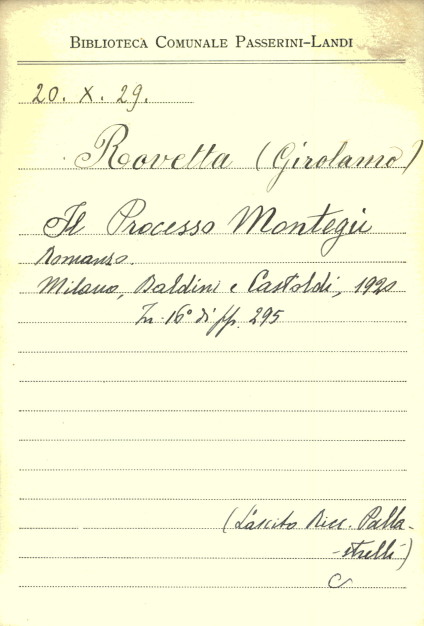 BIBLIOTECA COMUNALE PASSERINI-LANDI
20. X. 29.
Rovetta (Girolamo)
Il Processo Montegù
Romanzo.
Milano, Baldini e Castoldi, 1920
In 16° di pp. 295
(Lascito Ricc. Palla-
-strelli)
C